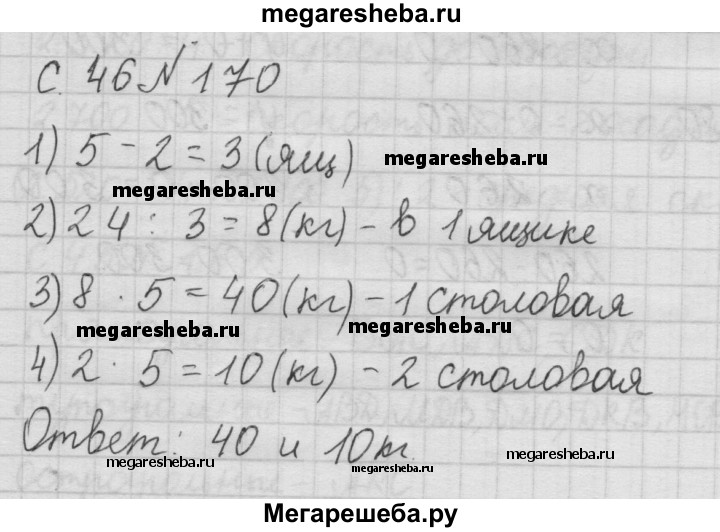 megaresheba.ru
с. 46 N 170
1) 5 - 2 = 3 (ящ) megaresheba.ru
megaresheba.ru
2) 24 : 3 = 8 (кг) - в 1 ящике
3) 8 · 5 = 40 (кг) - 1 столовая
megaresheba.ru megaresheba.ru
4) 2 · 5 = 10 (кг) - 2 столовая
Ответ: 40 и 10 кг.
megaresheba.ru megaresheba.ru megaresheba.ru
Мегарешеба.ру